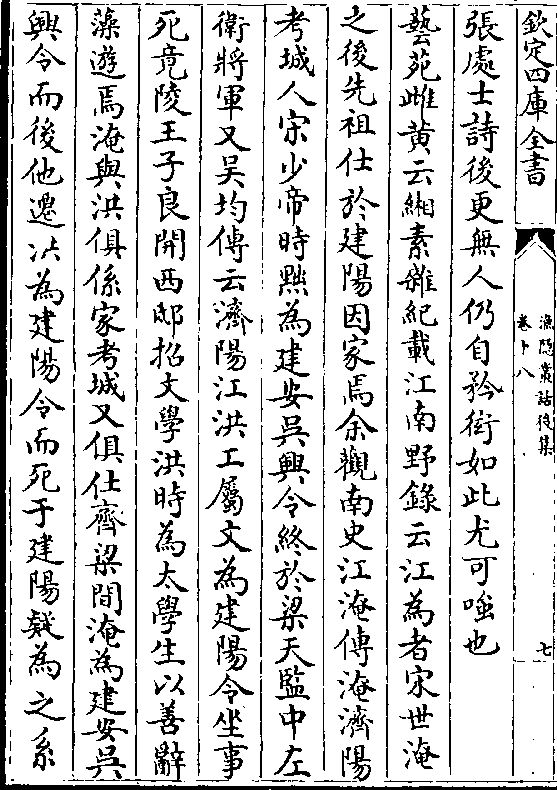 欽定四庫全書
漁隱叢話後集
卷十八
七
張處士詩後更無人仍自矜衒如此尤可嗤也
藝苑雌黃云緗素雜紀載江南野錄云江為者宋世淹
之後先祖仕於建陽因家焉余觀南史江淹傳淹濟陽
考城人宋少帝時黜為建安吳興令終於梁天監中左
衛將軍又吴均傳云濟陽江洪工屬文為建陽令坐事
死竟陵王子良開西邸招文學洪時為太學生以善辭
藻遊焉淹與洪俱係家考城又俱仕齊梁間淹為建安吳
興令而後他遷洪為建陽令而死于建陽疑為之系